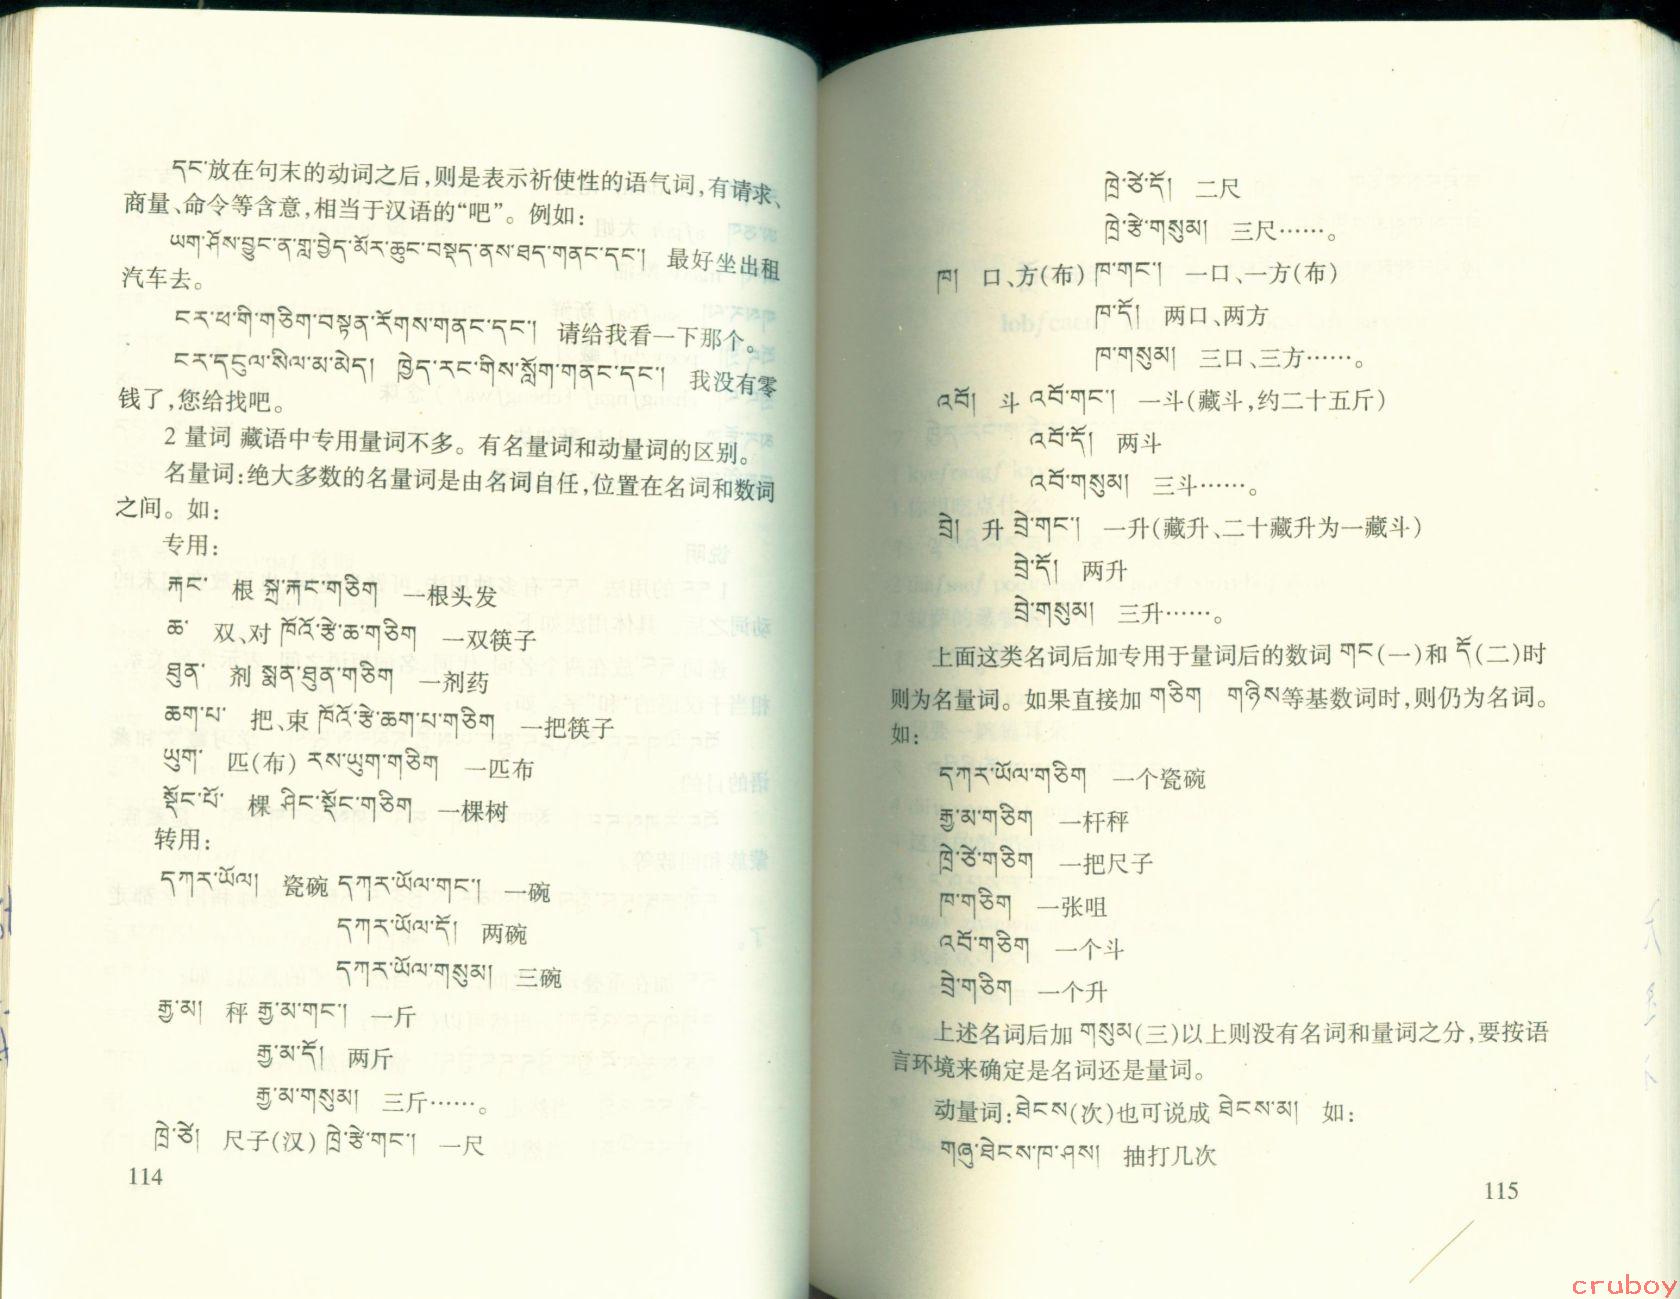 དང་放在句末的动词之后,则是表示祈使性的语气词,有请求、
商量、命令等含意,相当于汉语的“吧”。例如:
ཡག་ཤོས་བྱུང་ན་གླ་བྱེད་མོར་ཆུང་བསྡད་ནས་ཐད་གནང་དང་། 最好坐出租
汽车去。
ངར་ཕ་གི་གཅིག་བསྟན་རོགས་གནང་དང་། 请给我看一下那个。
ངར་དངུལ་སིལ་མ་མེད། ཁྱེད་རང་གིས་སློག་གནང་དང་། 我没有零
钱了,您给找吧。
2 量词 藏语中专用量词不多。有名量词和动量词的区别。
名量词:绝大多数的名量词是由名词自任,位置在名词和数词
之间。如:
专用:
རྐང་ 根 སྐྲ་རྐང་གཅིག 一根头发
ཆ་ 双、对 ཁོའོ་རྩེ་ཆ་གཅིག 一双筷子
ཐུན་ 剂 སྨན་ཐུན་གཅིག 一剂药
ཆག་པ་ 把、束 ཁོའོ་རྩེ་ཆག་པ་གཅིག 一把筷子
ཡུག་ 匹(布) རས་ཡུག་གཅིག 一匹布
སྡོང་པོ་ 棵 ཤིང་སྡོང་གཅིག 一棵树
转用:
དཀར་ཡོལ། 瓷碗 དཀར་ཡོལ་གང་། 一碗
དཀར་ཡོལ་དོ། 两碗
དཀར་ཡོལ་གསུམ། 三碗
རྒྱ་མ། 秤 རྒྱ་མ་གང་། 一斤
རྒྱ་མ་དོ། 两斤
རྒྱ་མ་གསུམ། 三斤……。
ཁྲེ་ཙེ། 尺子(汉) ཁྲེ་རྩེ་གང་། 一尺
114
ཁྲེ་ཙེ་དོ། 二尺
ཁྲེ་རྩེ་གསུམ། 三尺……。
ཁ། 口、方(布) ཁ་གང་། 一口、一方(布)
ཁ་དོ། 两口、两方
ཁ་གསུམ། 三口、三方……。
འབོ། 斗 འབོ་གང་། 一斗(藏斗,约二十五斤)
འབོ་དོ། 两斗
འབོ་གསུམ། 三斗……。
བྲེ། 升 བྲེ་གང་། 一升(藏升、二十藏升为一藏斗)
བྲེ་དོ། 两升
བྲེ་གསུམ། 三升……。
上面这类名词后加专用于量词后的数词 གང(一)和 དོ(二)时
则为名量词。如果直接加 གཅིག གཉིས等基数词时,则仍为名词。
如:
དཀར་ཡོལ་གཅིག 一个瓷碗
རྒྱ་མ་གཅིག 一杆秤
ཁྲེ་ཙེ་གཅིག 一把尺子
ཁ་གཅིག 一张咀
འབོ་གཅིག 一个斗
བྲེ་གཅིག 一个升
上述名词后加 གསུམ(三)以上则没有名词和量词之分,要按语
言环境来确定是名词还是量词。
动量词:ཐེངས(次)也可说成 ཐེངས་མ། 如:
གཞུ་ཐེངས་ཁ་ཤས། 抽打几次
115
cruboy